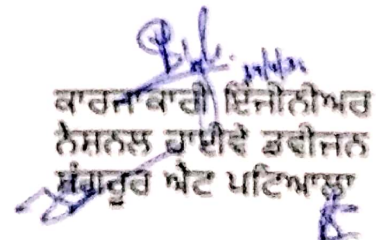 ਕਾਰਜਕਾਰੀ ਇੰਜੀਨੀਅਰ
ਨੈਸ਼ਨਲ ਹਾਈਵੇ ਡਵੀਜਨ
ਸੰਗਰੂਰ ਐਟ ਪਟਿਆਲਾ